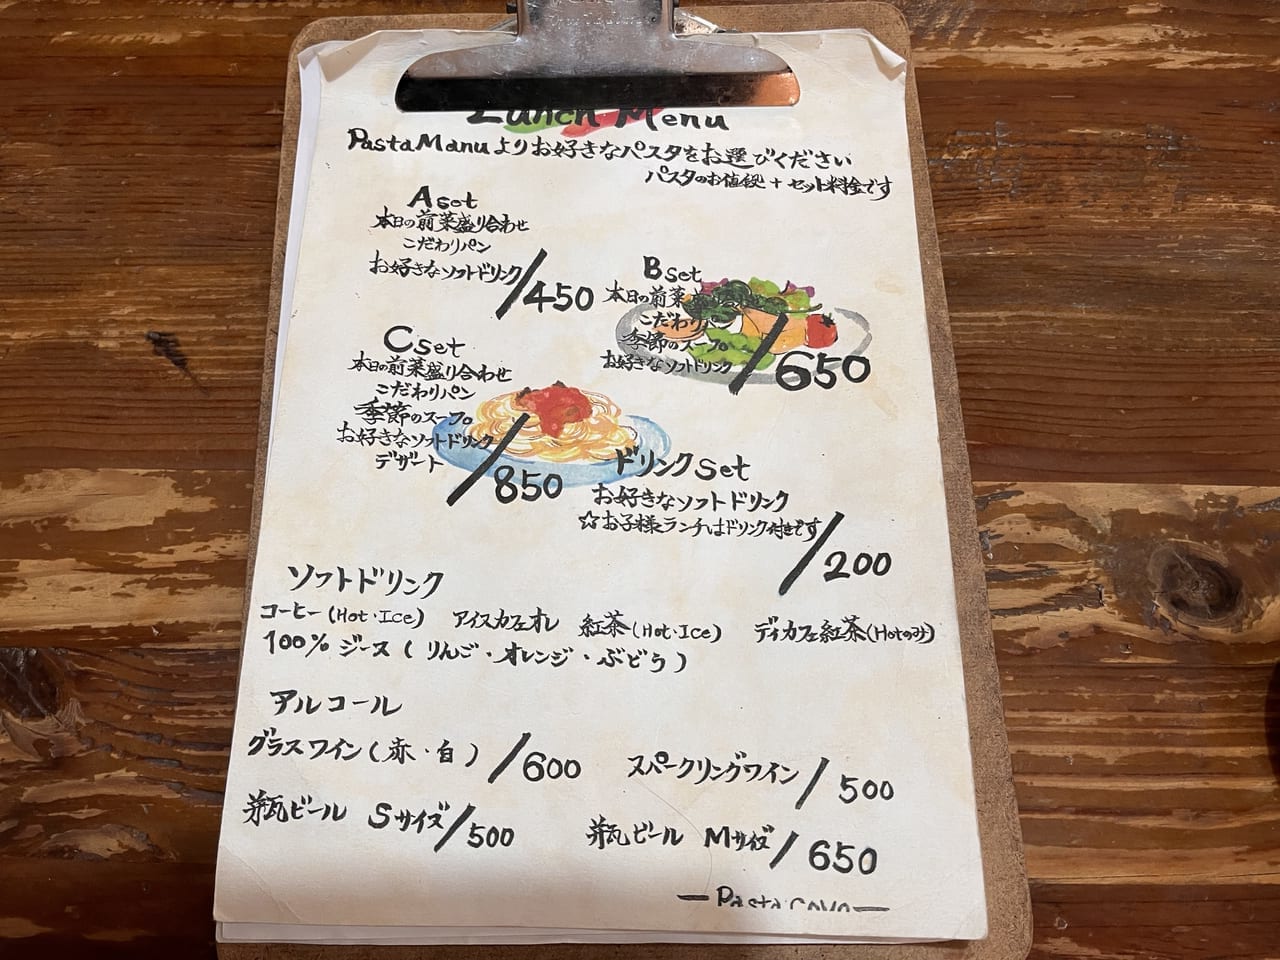 Lunch Menu
Pasta Manuよりお好きなパスタをお選びください
パスタのお値段 + セット料金です
A set
本日の前菜盛り合わせ
こだわりパン
お好きなソフトドリンク/450
B set
本日の前菜盛り合わせ
こだわりパン
季節のスープ
お好きなソフトドリンク/650
C set
本日の前菜盛り合わせ
こだわりパン
季節のスープ
お好きなソフトドリンク
デザート/850
ドリンクset
お好きなソフトドリンク
☆お子様ランチはドリンク付きです/200
ソフトドリンク
コーヒー(Hot・Ice) アイスカフェオレ 紅茶(Hot・Ice) ディカフェ紅茶(Hotのみ)
100% ジース(りんご・オレンジ・ぶどう)
アルコール
グラスワイン(赤・白)/600 スパークリングワイン/500
瓶ビール Sサイズ/500 瓶ビール Mサイズ/650
—Pasta